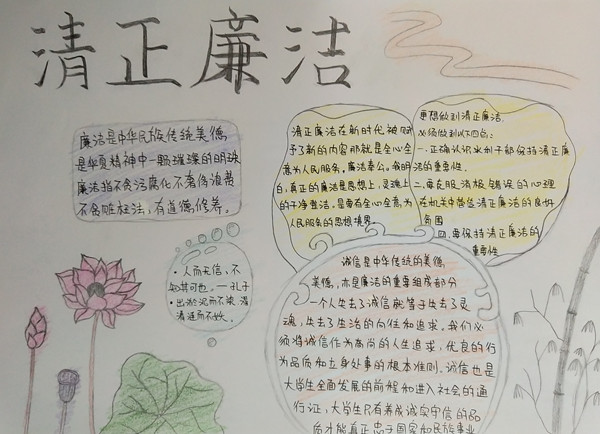 清正廉洁
廉洁是中华民族传统美德
是华夏精神中一颗璀璨的明珠
廉洁指不贪污腐化不奢侈浪费
不贪赃枉法,有道德修养。
·人而无信,不
知其可也。—孔子
·出淤泥而不染 濯
清涟而不妖。
清正廉洁在新时代被赋
予了新的内容那就是全心全
意为人民服务。廉洁奉公。我明
白,真正的廉洁是思想上,灵魂上
的干净整洁。是带有全心全意为
人民服务的思想境界
要想做到清正廉洁,
必须做到以下四点:
一.正确认识水利干部保持清正廉
洁的重要性.
二.要克服消极错误的心理
在机关中营造清正廉洁的良好
氛围
四.要保持清正廉洁的
重要性
诚信是中华传统的美德
美德,亦是廉洁的重要组成部分
一个人失去了诚信就等于失去了灵
魂,失去了生活的向往和追求。我们必
须将诚信作为高尚的人生追求,优良的行
为品质和立身处事的根本准则。诚信也是
大学生全面发展的前程和进入社会的通
行证,大学生只有养成诚实守信的品
质才能真正忠于国家和民族事业